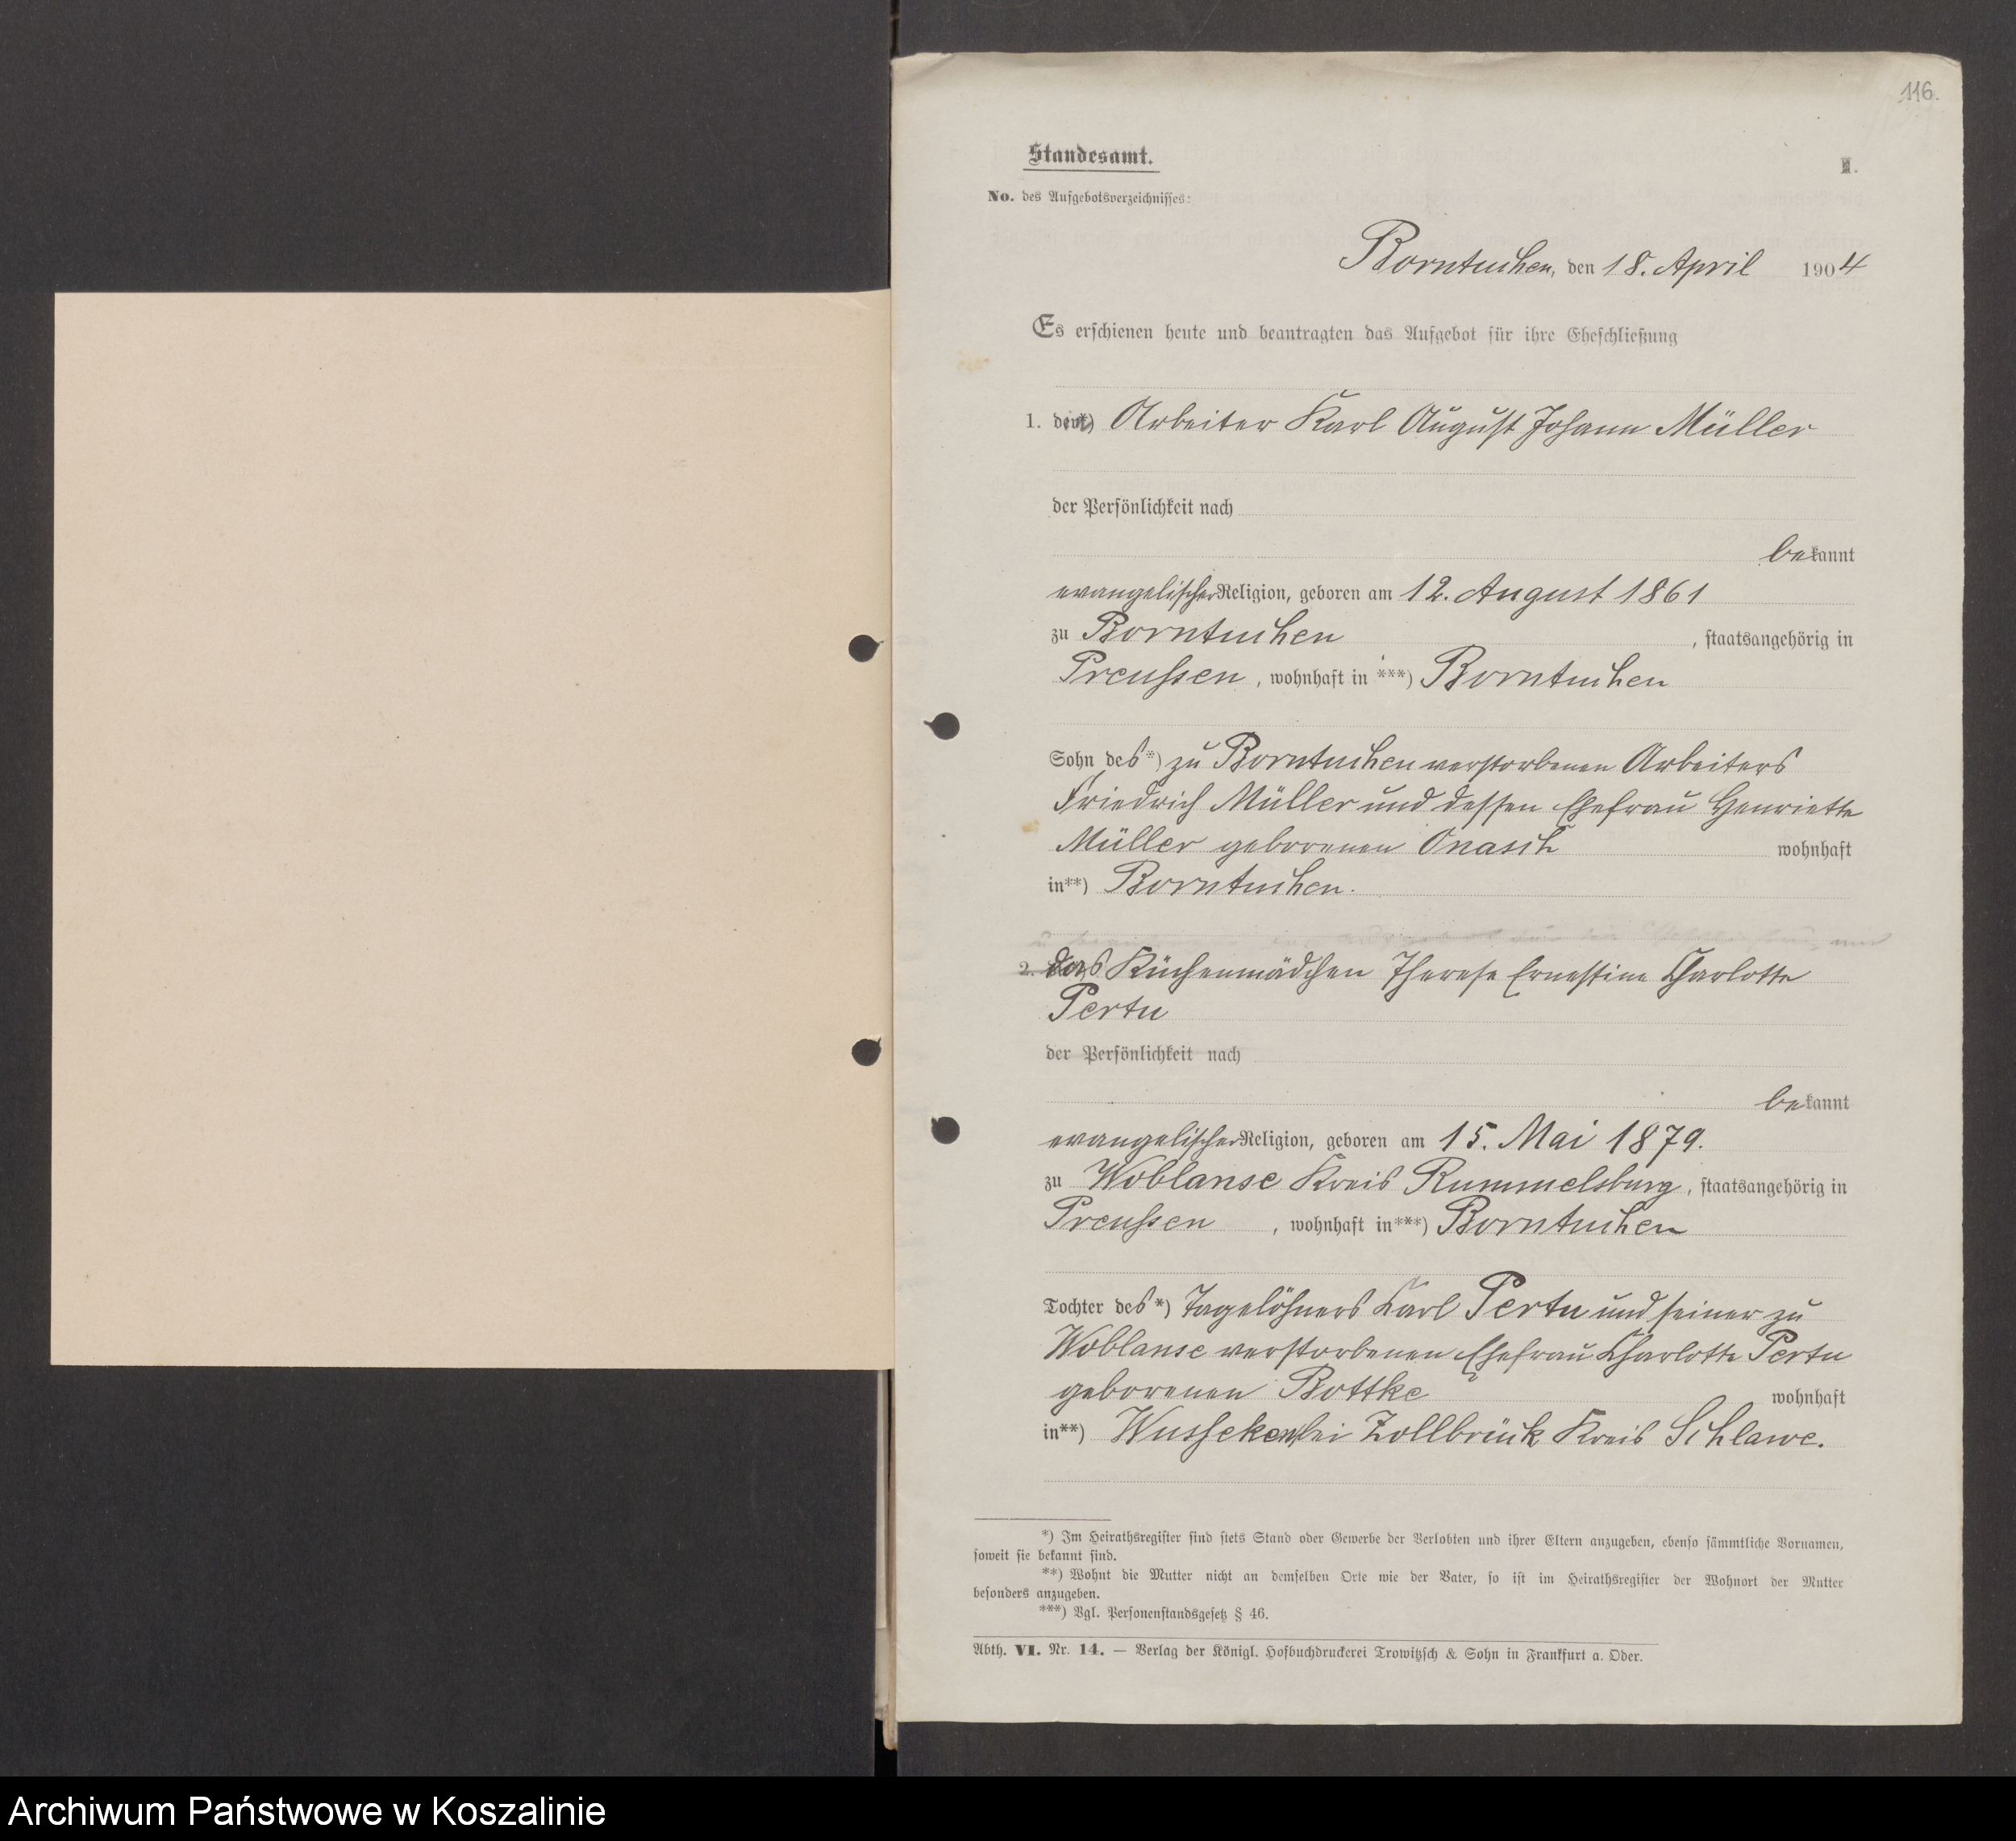 116.
Standesamt.
II.
No. des Aufgebotsverzeichnisses:
Borntuchen, den 18. April 1904
Es erschienen heute und beantragten das Aufgebot für ihre Eheschließung
1. der*) Arbeiter Karl August Johann Müller
der Persönlichkeit nach
bekannt
evangelischer Religion, geboren am 12. August 1861
zu Borntuchen, staatsangehörig in
Preussen, wohnhaft in ***) Borntuchen
Sohn des*) zu Borntuchen verstorbenen Arbeiters
Friedrich Müller und dessen Ehefrau Henriette
Müller geborenen Onasch wohnhaft
in**) Borntuchen.
2. das Küchenmädchen Therese Ernestine Charlotte
Pertu
der Persönlichkeit nach
bekannt
evangelischer Religion, geboren am 15. Mai 1879.
zu Woblanse Kreis Rummelsburg, staatsangehörig in
Preussen, wohnhaft in***) Borntuchen
Tochter des*) Tagelöhners Karl Pertu und seiner zu
Woblanse verstorbenen Ehefrau Charlotte Pertu
geborenen Bottke wohnhaft
in**) Wusseken bei Zollbrück Kreis Schlawe.
*) Im Heirathsregister sind stets Stand oder Gewerbe der Verlobten und ihrer Eltern anzugeben, ebenso sämmtliche Vornamen,
soweit sie bekannt sind.
**) Wohnt die Mutter nicht an demselben Orte wie der Vater, so ist im Heirathsregister der Wohnort der Mutter
besonders anzugeben.
***) Vgl. Personenstandsgesetz § 46.
Abth. VI. Nr. 14. — Verlag der Königl. Hofbuchdruckerei Trowitzsch & Sohn in Frankfurt a. Oder.
Archiwum Państwowe w Koszalinie